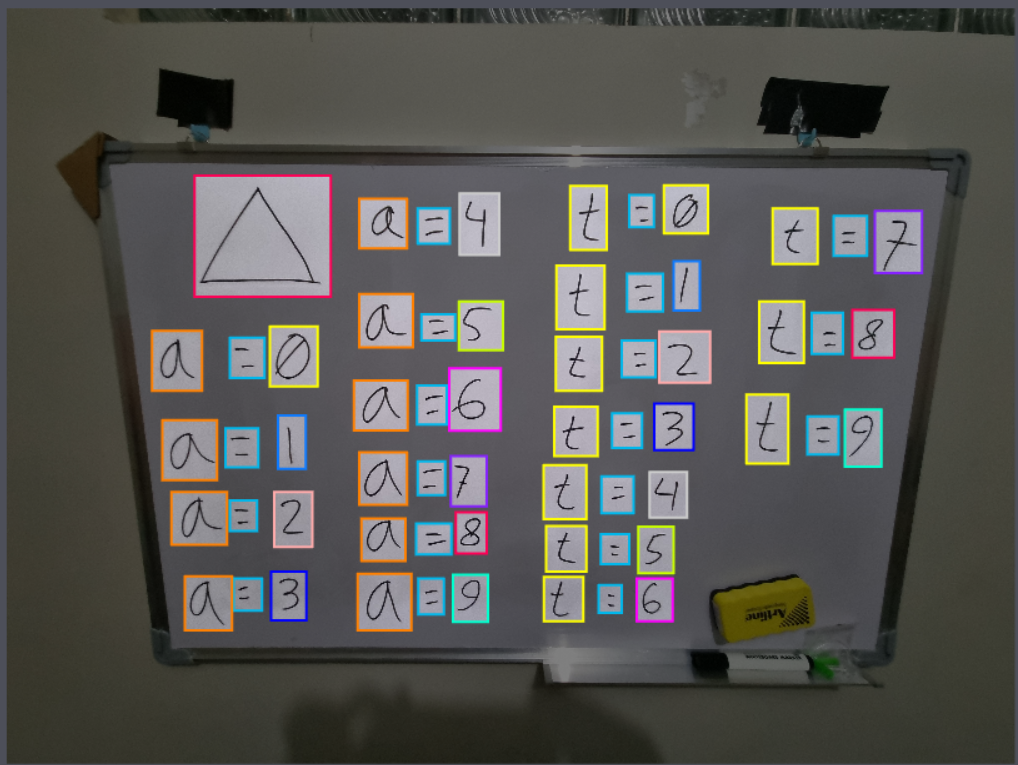 a = 0
a = 1
a = 2
a = 3
a = 4
a = 5
a = 6
a = 7
a = 8
a = 9
t = 0
t = 1
t = 2
t = 3
t = 4
t = 5
t = 6
t = 7
t = 8
t = 9
Artline